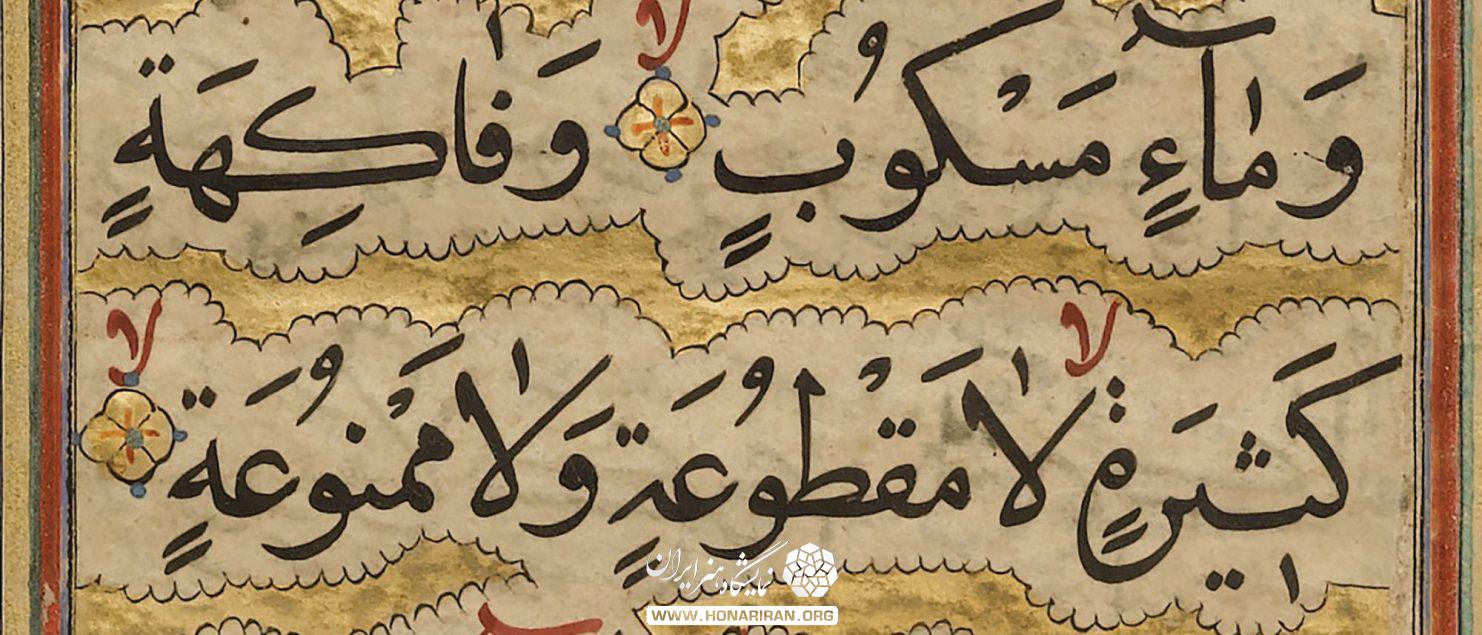 وَمَآءٍ مَسْكُوبٍ لا وَفَاكِهَةٍ
كَثِيرَةٍ لا لَا مَقْطُوعَةٍ وَلَا مَمْنُوعَةٍ لا
نمایشگاه هنر ایران
WWW.HONARIRAN.ORG